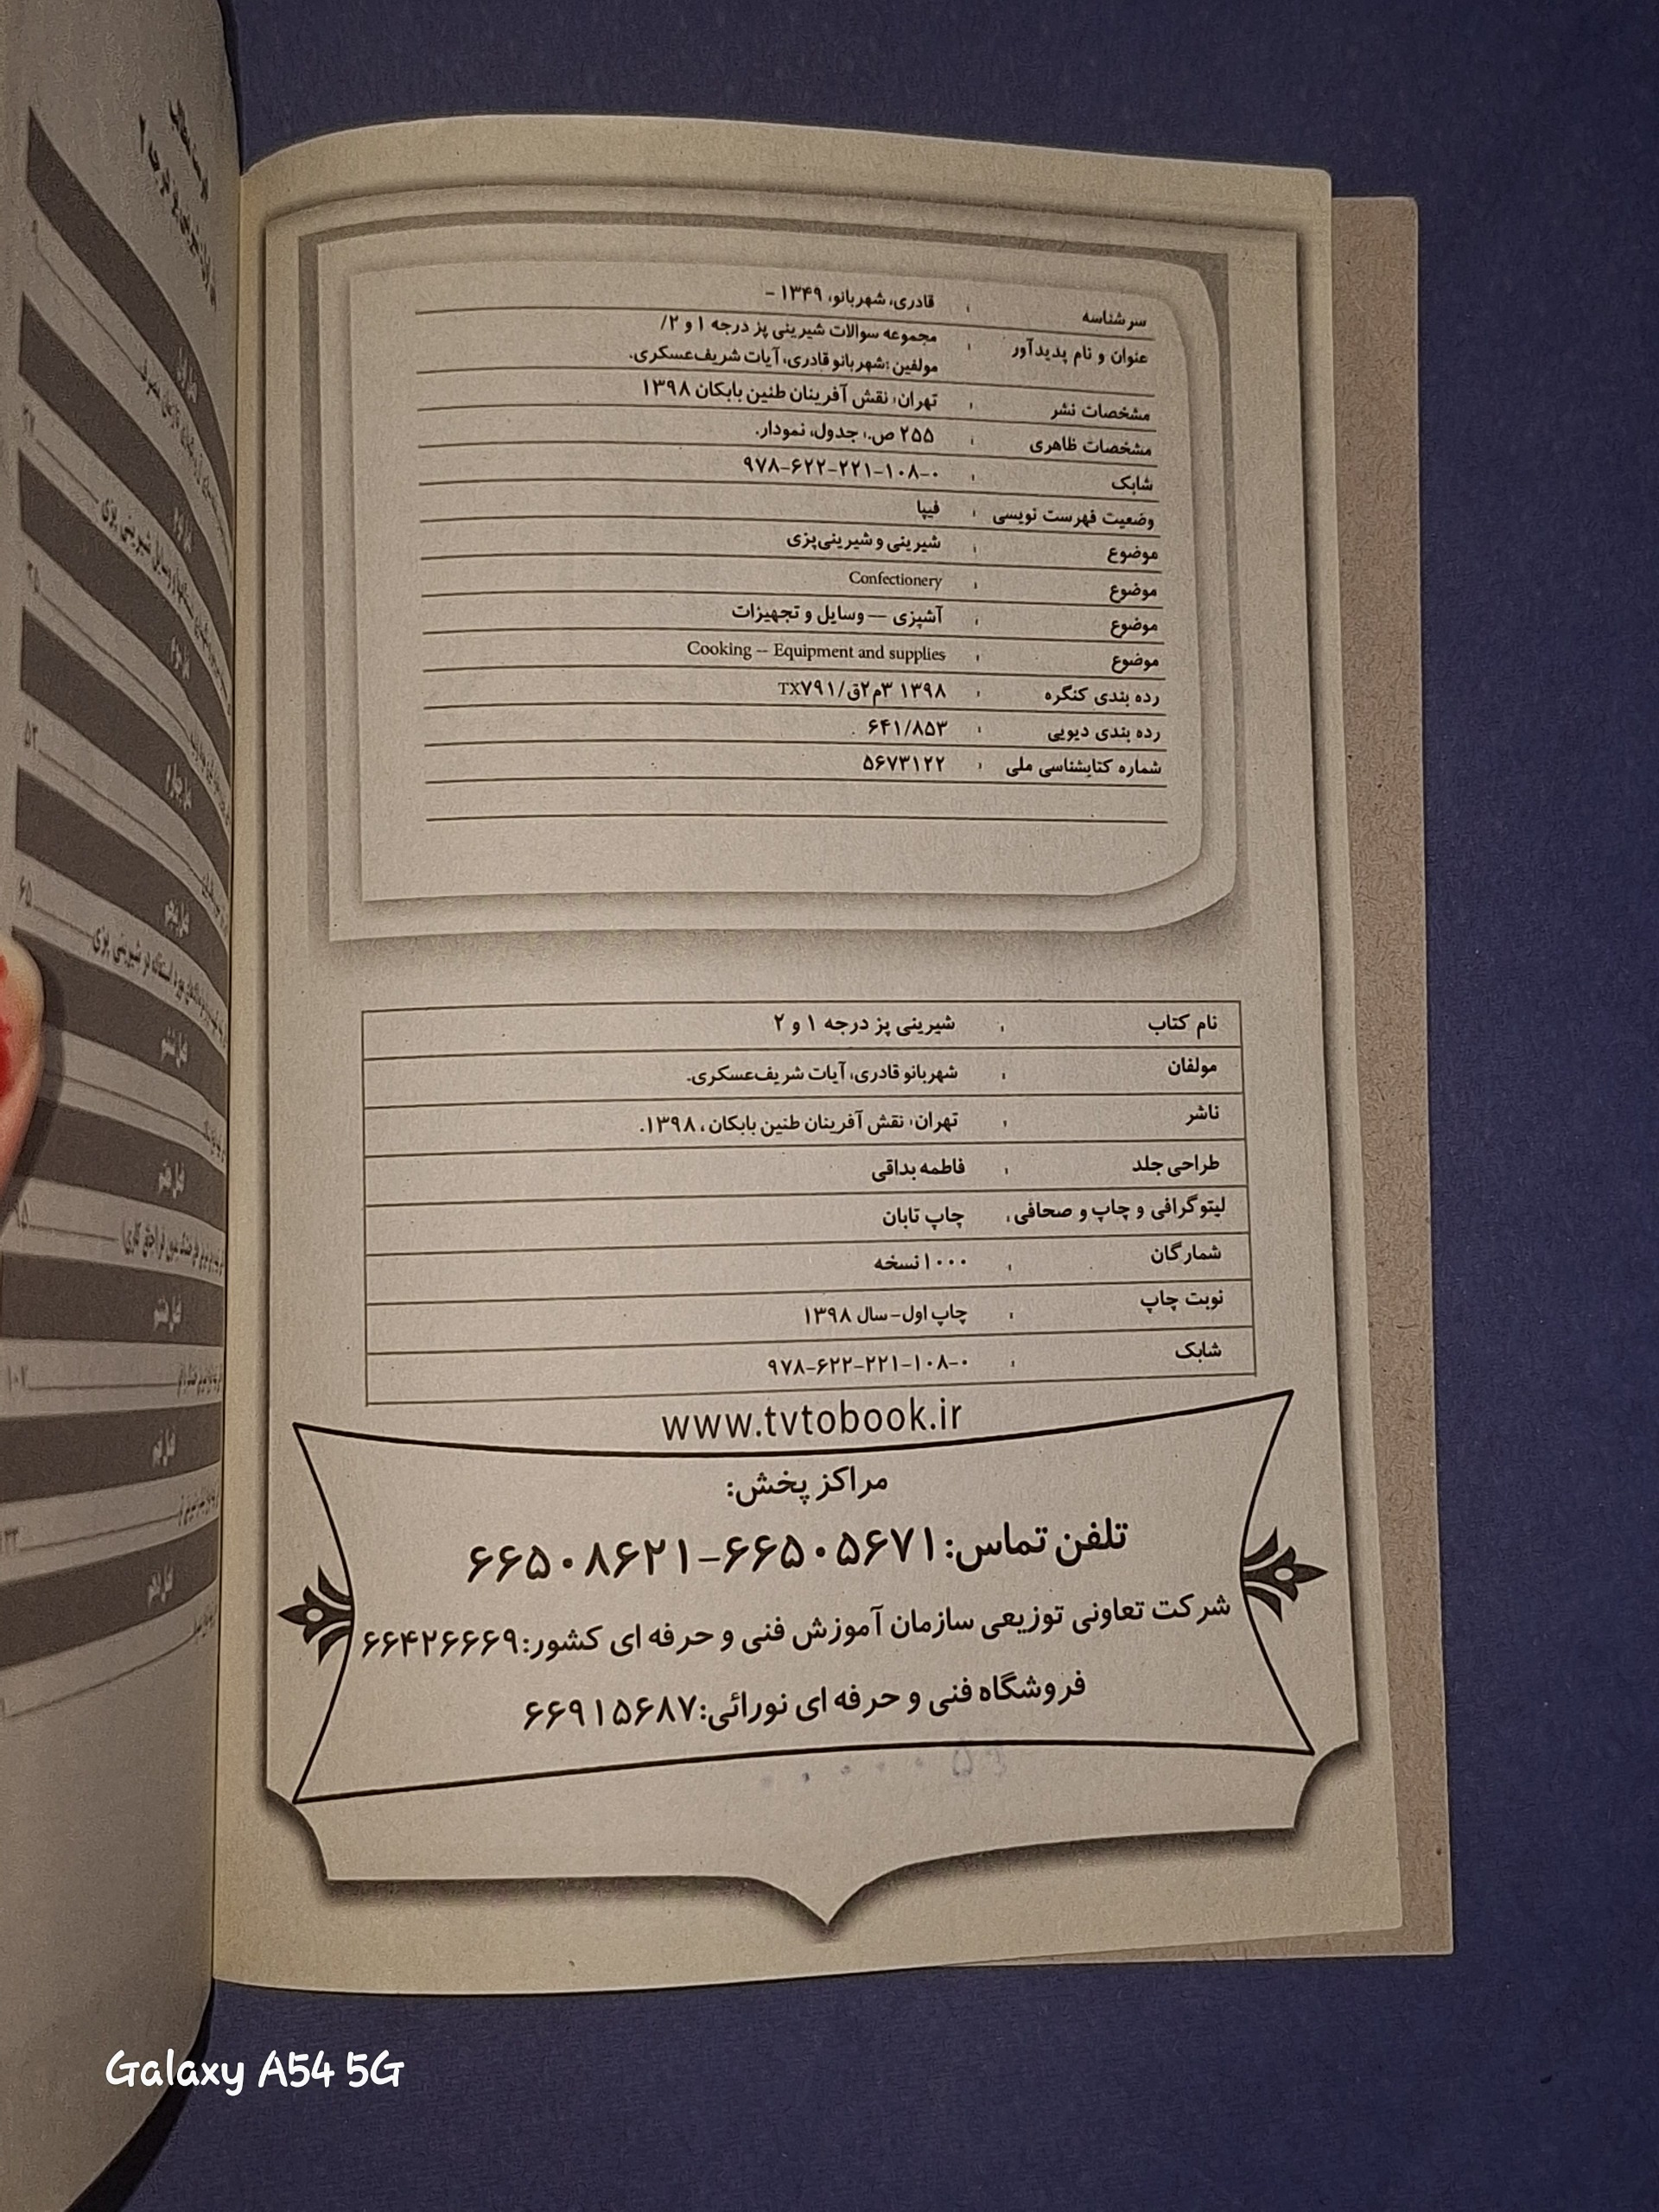 سرشناسه : قادری، شهربانو، ۱۳۴۹ -
عنوان و نام پدیدآور : مجموعه سوالات شیرینی پز درجه ۱ و ۲/
مولفین :شهربانو قادری، آیات شریف‌عسکری.
مشخصات نشر : تهران: نقش آفرینان طنین بابکان ۱۳۹۸
مشخصات ظاهری : ۲۵۵ ص.: جدول، نمودار.
شابک : ۹۷۸-۶۲۲-۲۲۱-۱۰۸-۰
وضعیت فهرست نویسی : فیپا
موضوع : شیرینی و شیرینی‌پزی
موضوع : Confectionery
موضوع : آشپزی — وسایل و تجهیزات
موضوع : Cooking -- Equipment and supplies
رده بندی کنگره : TX۷۹۱/ق۲م۳ ۱۳۹۸
رده بندی دیویی : ۶۴۱/۸۵۳
شماره کتابشناسی ملی : ۵۶۷۳۱۲۲
نام کتاب : شیرینی پز درجه ۱ و ۲
مولفان : شهربانو قادری، آیات شریف‌عسکری.
ناشر : تهران: نقش آفرینان طنین بابکان، ۱۳۹۸.
طراحی جلد : فاطمه بداقی
لیتوگرافی و چاپ و صحافی: چاپ تابان
شمارگان : ۱۰۰۰ نسخه
نوبت چاپ : چاپ اول-سال ۱۳۹۸
شابک : ۹۷۸-۶۲۲-۲۲۱-۱۰۸-۰
www.tvtobook.ir
مراکز پخش:
تلفن تماس:۶۶۵۰۵۶۷۱-۶۶۵۰۸۶۲۱
شرکت تعاونی توزیعی سازمان آموزش فنی و حرفه ای کشور:۶۶۴۲۶۶۶۹
فروشگاه فنی و حرفه ای نورائی:۶۶۹۱۵۶۸۷
Galaxy A54 5G